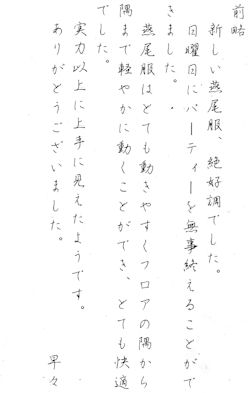 前略
新しい燕尾服、絶好調でした。
日曜日にパーティーを無事終えることがで
きました。
燕尾服はとても動きやすくフロアの隅から
隅まで軽やかに動くことができ、とても快適
でした。
実力以上に上手に見えたようです。
ありがとうございました。
早々